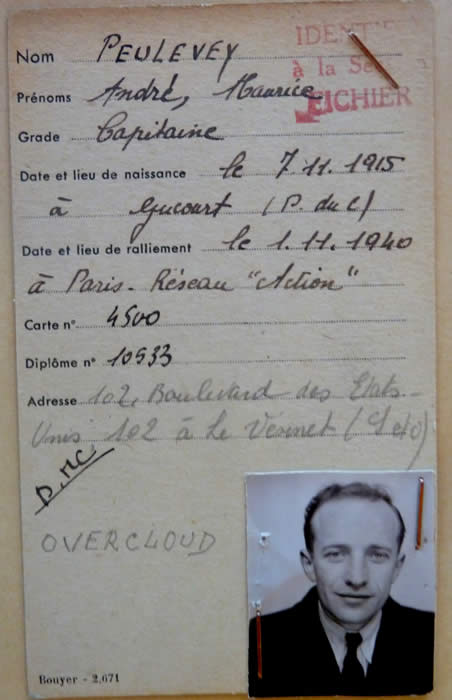 IDENTIFIÉ
à la Sec
FICHIER
Nom PEULEVEY
Prénoms André, Maurice
Grade Capitaine
Date et lieu de naissance le 7.11.1915
à Gucourt (P. du C)
Date et lieu de ralliement le 1.11.1940
à Paris - Réseau "Action"
Carte n° 4500
Diplôme n° 10933
Adresse 102, Boulevard des Etats-
Unis 102 à Le Vésinet (S et O)
D.MC.
OVERCLOUD
Bouyer - 2,671